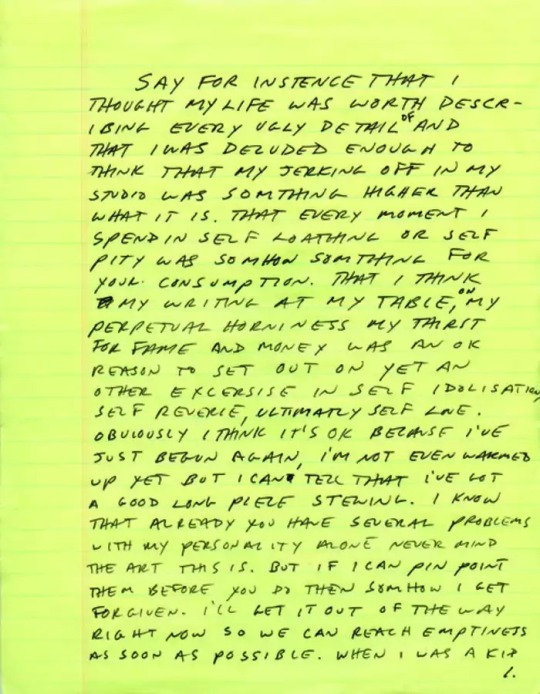 SAY FOR INSTENCE THAT I
THOUGHT MY LIFE WAS WORTH DESCR-
IBING EVERY UGLY DETAIL OF AND
THAT I WAS DELUDED ENOUGH TO
THINK THAT MY JERKING OFF IN MY
STUDIO WAS SOMTHING HIGHER THAN
WHAT IT IS. THAT EVERY MOMENT I
SPEND IN SELF LOATHING OR SELF
PITY WAS SOMHOW SOMTHING FOR
YOUR CONSUMPTION. THAT I THINK
MY WRITING AT MY TABLE, ON MY
PERPETUAL HORNINESS MY THIRST
FOR FAME AND MONEY WAS AN OK
REASON TO SET OUT ON YET AN
OTHER EXCERSISE IN SELF IDOLISATION,
SELF REVERIE, ULTIMATLY SELF LOVE.
OBVIOUSLY I THINK IT'S OK BECAUSE I'VE
JUST BEGUN AGAIN, I'M NOT EVEN WARMED
UP YET BUT I CAN TELL THAT I'VE GOT
A GOOD LONG PIECE STEWING. I KNOW
THAT ALREADY YOU HAVE SEVERAL PROBLEMS
WITH MY PERSONALITY ALONE NEVER MIND
THE ART THIS IS. BUT IF I CAN PIN POINT
THEM BEFORE YOU DO THEN SOMHOW I GET
FORGIVEN. I'LL GET IT OUT OF THE WAY
RIGHT NOW SO WE CAN REACH EMPTINESS
AS SOON AS POSSIBLE. WHEN I WAS A KID
1.